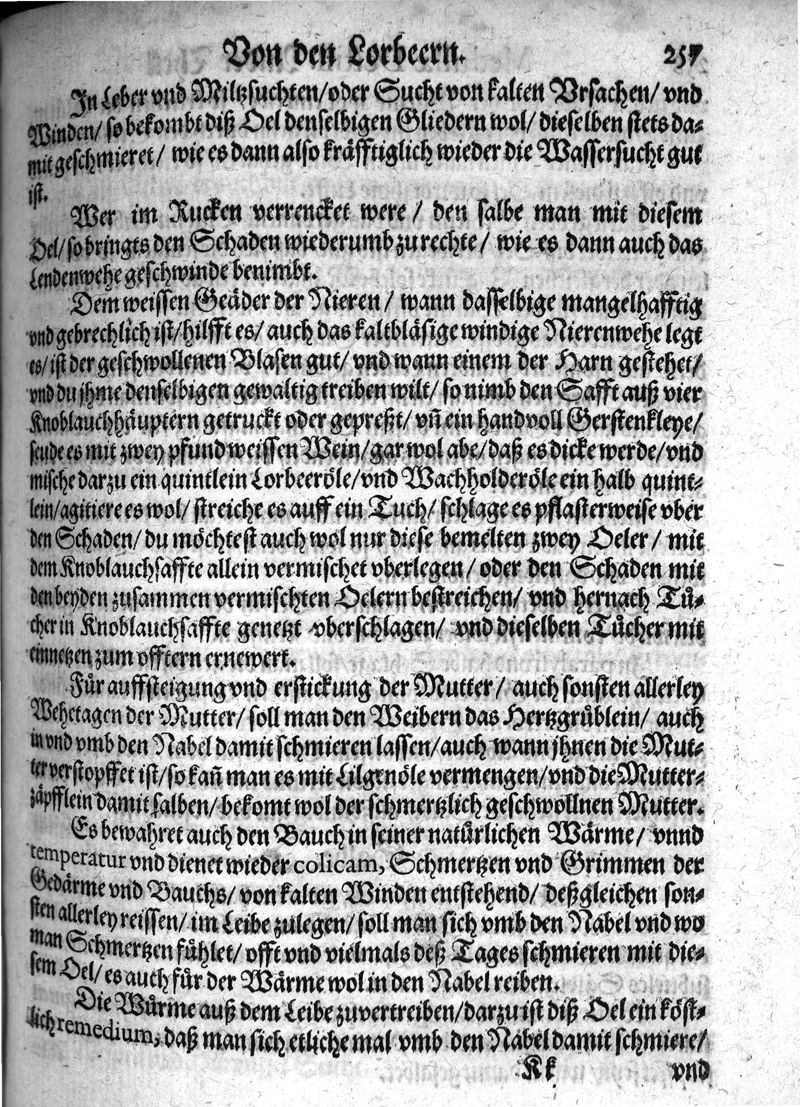 Von den Lorbeern. 257
In Leber vnd Miltzsuchten/oder Sucht von kalten Vrsachen/ vnd
Winden/ so bekombt diß Oel denselbigen Gliedern wol/ dieselben stets da-
mit geschmieret/ wie es dann also kräfftiglich wieder die Wassersucht gut
ist.
Wer im Rucken verrencket were/ den salbe man mit diesem
Oel/so bringts den Schaden wiederumb zu rechte/ wie es dann auch das
Lendenwehe geschwinde benimbt.
Dem weissen Geäder der Nieren/ wann dasselbige mangelhafftig
vnd gebrechlich ist/hilfft es/ auch das kaltbläsige windige Nierenwehe legt
es/ist der geschwollenen Blasen gut/ vnd wann einem der Harn gestehet/
vnd du jhme denselbigen gewaltig treiben wilt/ so nimb den Safft auß vier
Knoblauchhäuptern getruckt oder gepreßt/ vñ ein handvoll Gerstenkleye/
seude es mit zwey pfund weissen Wein/gar wol abe/daß es dicke werde/vnd
mische darzu ein quintlein Lorbeeröle/vnd Wachholderöle ein halb quint-
lein/agitiere es wol/ streiche es auff ein Tuch/ schlage es pflasterweise vber
den Schaden/ du möchtest auch wol nur diese bemelten zwey Oeler/ mit
dem Knoblauchsaffte allein vermischet vberlegen/ oder den Schaden mit
den beyden zusammen vermischten Oelern bestreichen/ vnd hernach Tü-
cher in Knoblauchsaffte genetzt vberschlagen/ vnd dieselben Tücher mit
einnetzen zum offtern ernewert.
Für auffsteigung vnd erstickung der Mutter/ auch sonsten allerley
Wehetagen der Mutter/ soll man den Weibern das Hertzgrüblein/ auch
in vnd vmb den Nabel damit schmieren lassen/auch wann jhnen die Mut-
ter verstopffet ist/so kañ man es mit Lilgenöle vermengen/vnd die Mutter-
zäpfflein damit salben/ bekomt wol der schmertzlich geschwollnen Mutter.
Es bewahret auch den Bauch in seiner natürlichen Wärme/ vnnd
temperatur vnd dienet wieder colicam, Schmertzen vnd Grimmen der
Gedärme vnd Bauchs/ von kalten Winden entstehend/ deßgleichen son-
sten allerley reissen/ im Leibe zulegen/ soll man sich vmb den Nabel vnd wo
man Schmertzen fühlet/ offt vnd vielmals deß Tages schmieren mit die-
sem Oel/ es auch für der Wärme wol in den Nabel reiben.
Die Würme auß dem Leibe zuvertreiben/ darzu ist diß Oel ein köst-
lich remedium, daß man sich etliche mal vmb den Nabel damit schmiere/
Kk vnd